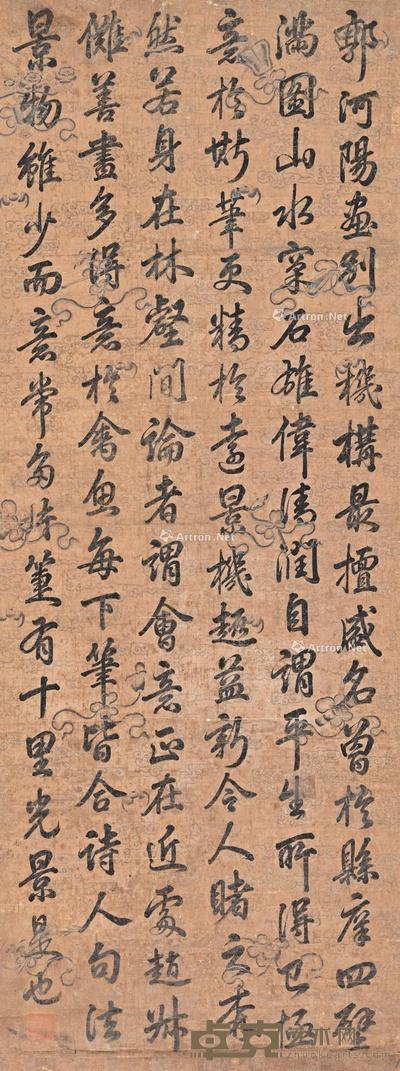 郭河陽畫别出機構最擅盛名曾於縣庠四壁
滿圖山水窠石雄偉清潤自謂平生所得已極
意於斯筆更精於遠景機趣益新令人睹之杳
然若身在林壑間論者謂會意正在近處趙叔
儺善畫多得意於禽魚每下筆皆合詩人句法
景物雖少而意常多落簾有十里光景是也